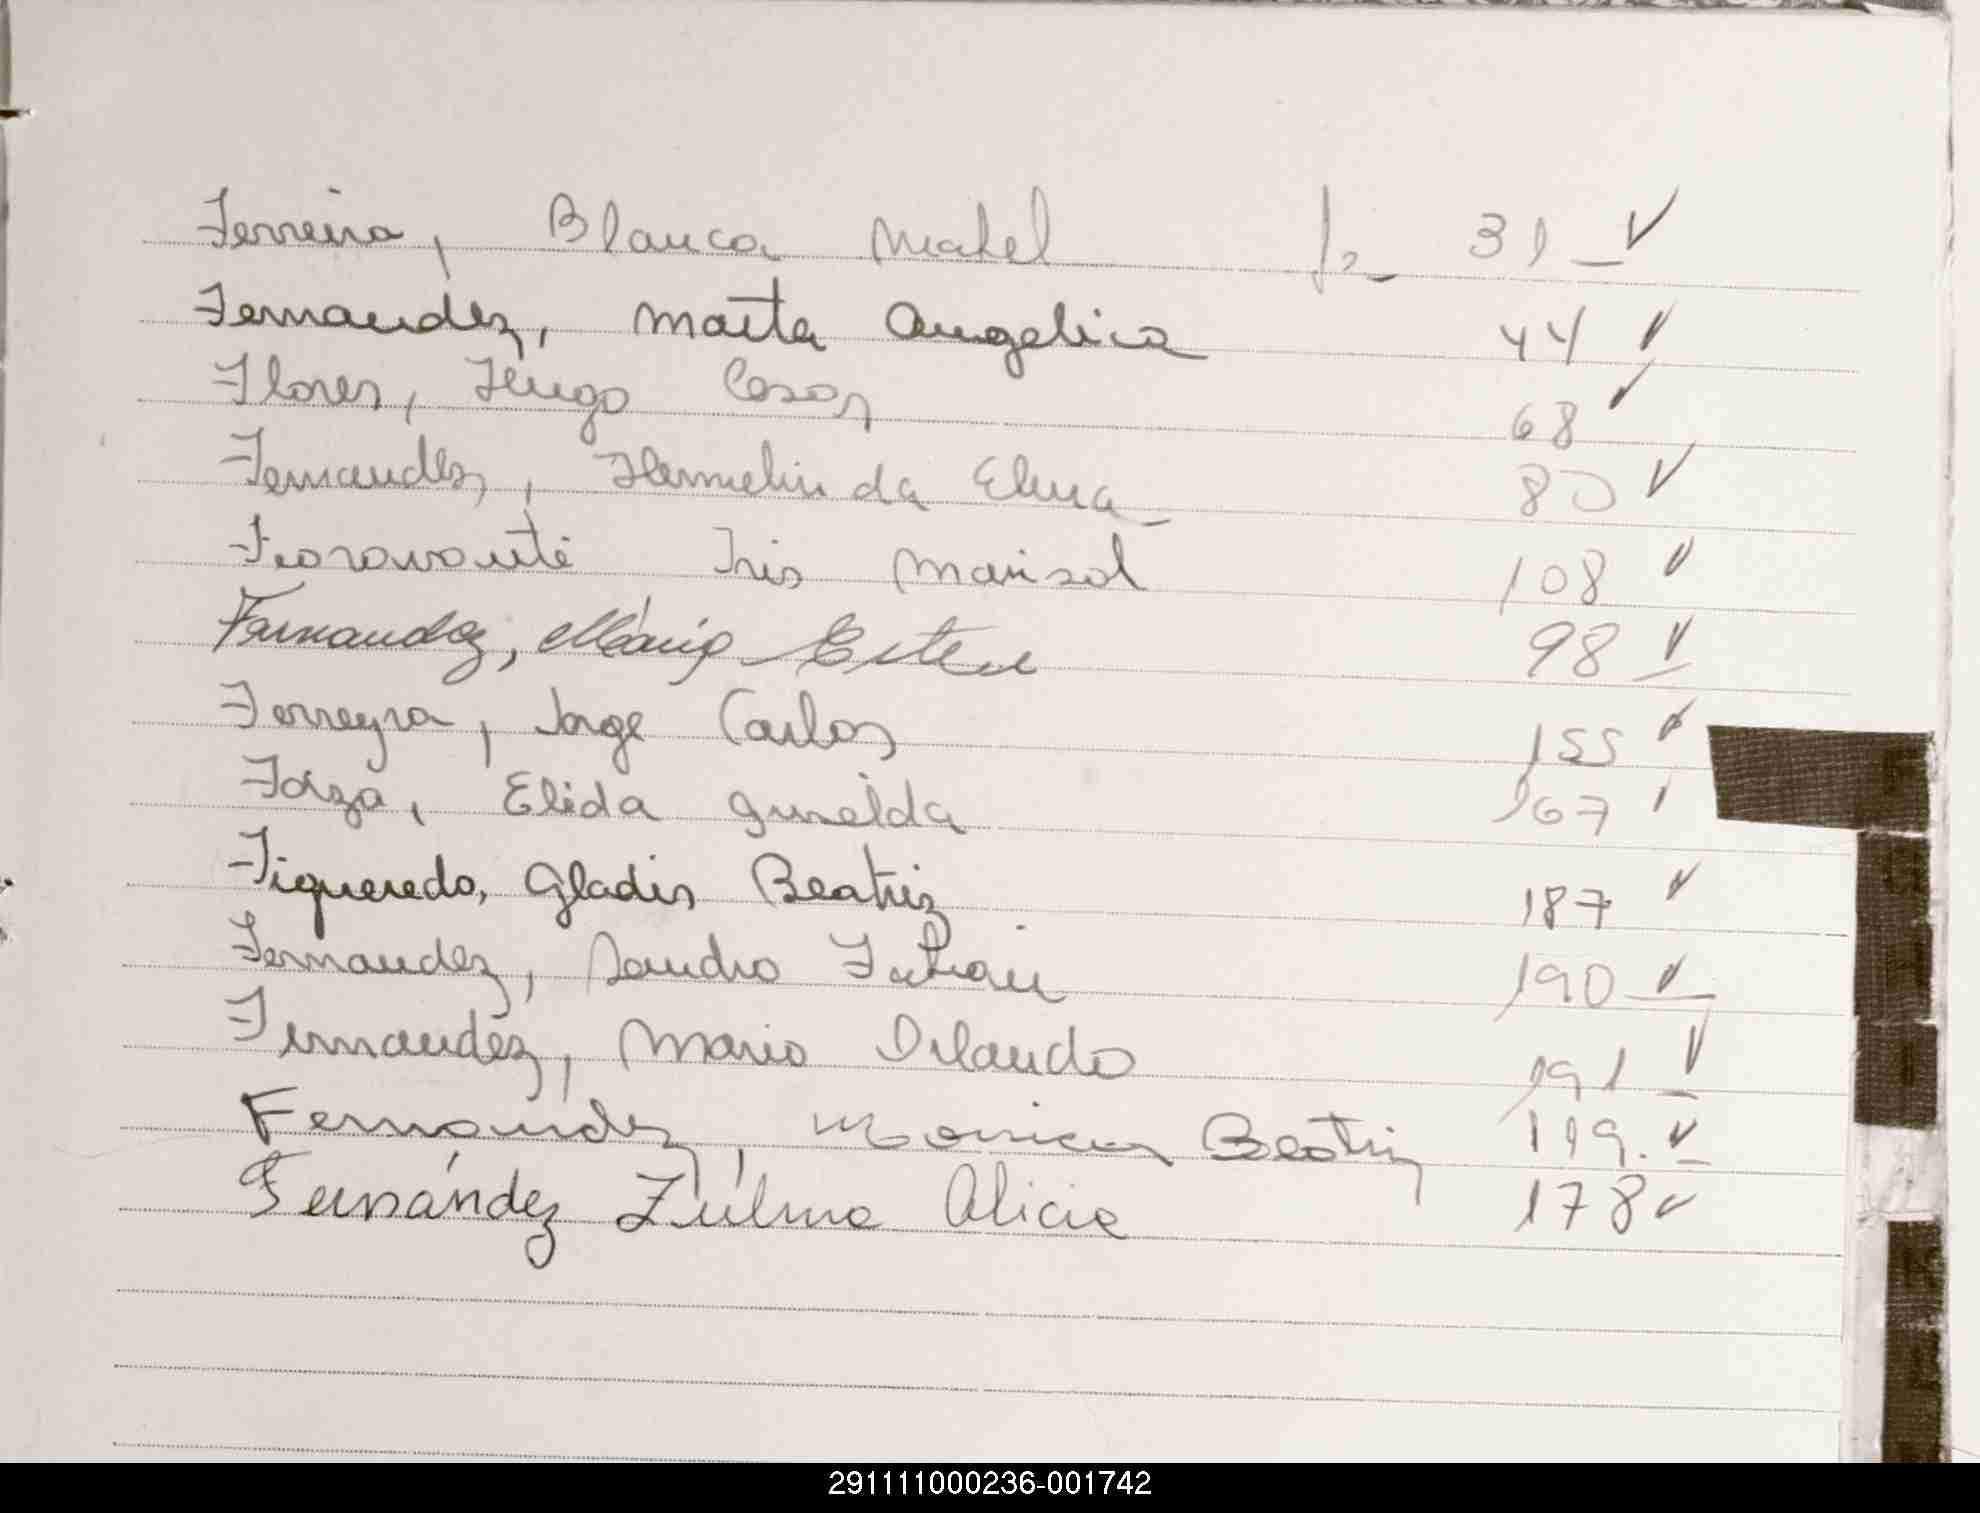 Ferreira, Blanca Mabel fs_ 31_ ✓
Fernandez, Marta Angelica 44 ✓
Flores, Hugo Cesar 68 ✓
Fernandez, Hermelinda Elena_ 80 ✓
Fioravanti Iris Marisol 108 ✓
Fernandez, María Ester 98 ✓
Ferreyra, Jorge Carlos 155 ✓
Forza, Elida Griselda 167 ✓
Figueredo, Gladis Beatriz 187 ✓
Fernandez, Sandro Fabian 190 ✓
Fernandez, Mario Orlando 191 ✓
Fernández, Monica Beatriz 199. ✓
Fernández Zulma Alicia 178 ✓
291111000236-001742